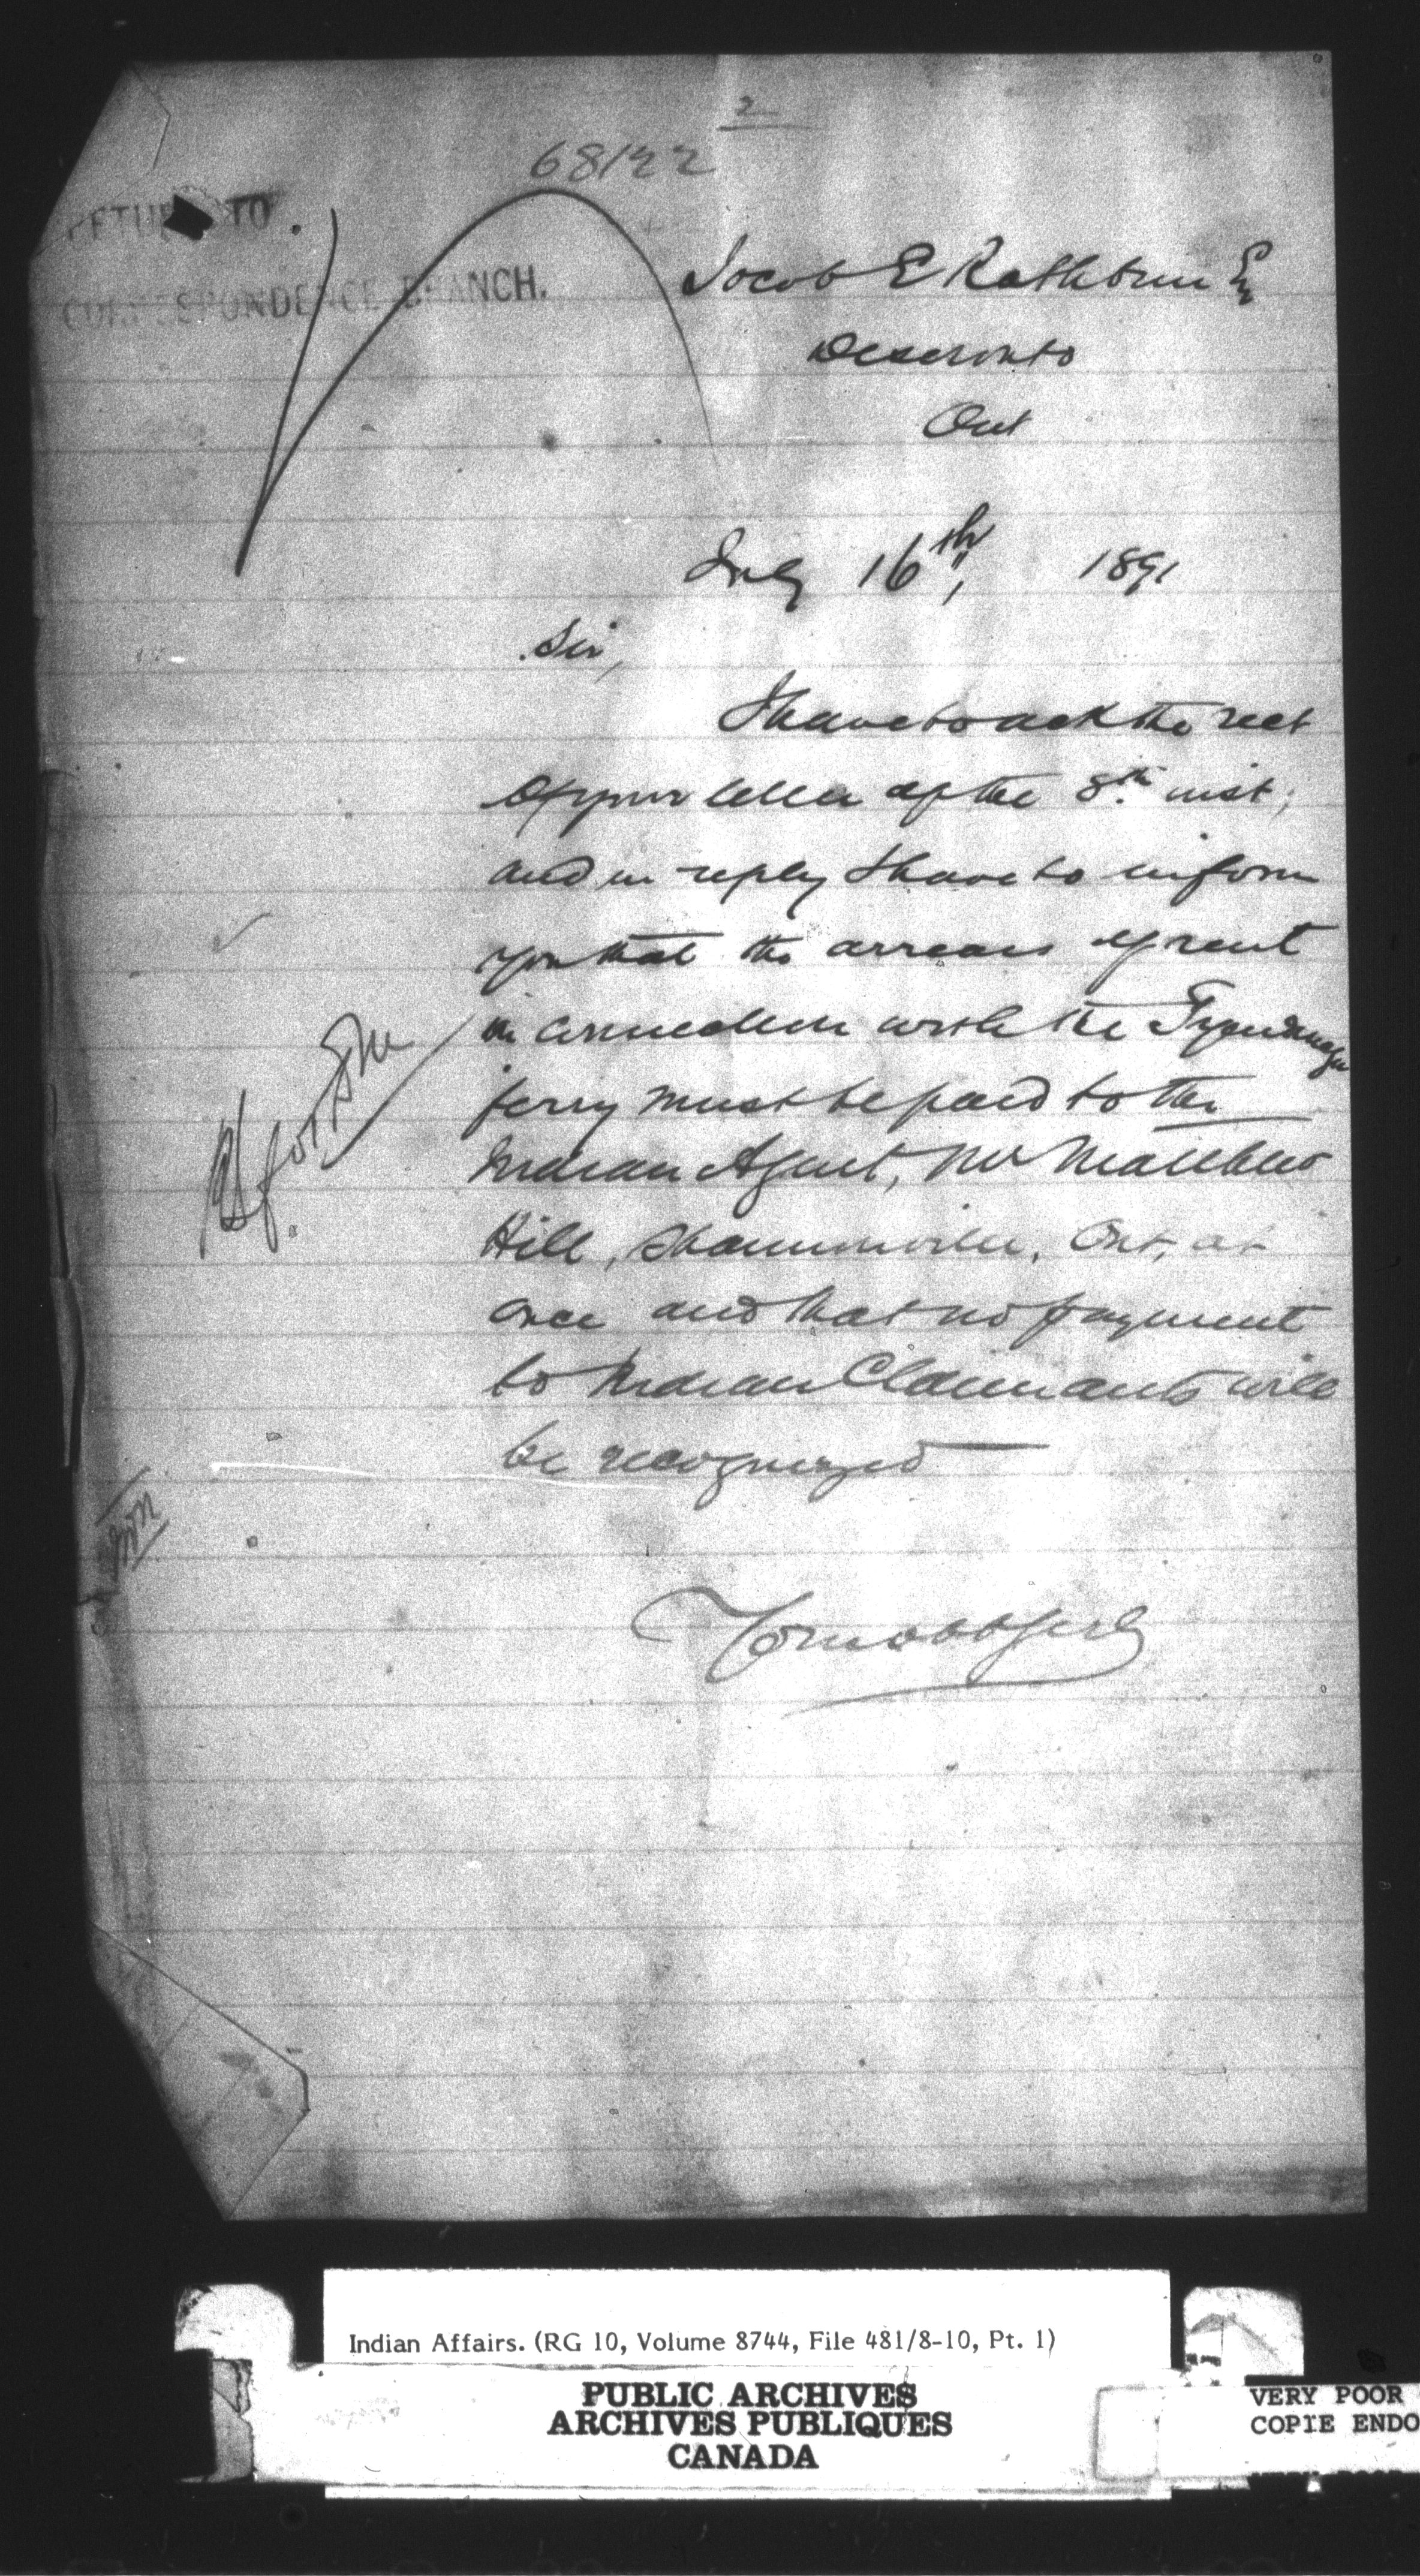 2
68122
RETURN TO
CORRESPONDENCE BRANCH.
Jacob E Rathbun Esq
Deseronto
Ont
July 16th, 1891
Sir,
I have to ack the rect
of your letter of the 8th inst,
and in reply I have to inform
you that the arrears of rent
in connection with the Tyendinaga
ferry must be paid to the
Indian Agent, Mr Matthew
Hill, Shannonville, Ont, at
once and that no payment
to Indian Claimants will
be recognized
Indian Affairs. (RG 10, Volume 8744, File 481/8-10, Pt. 1)
PUBLIC ARCHIVES
ARCHIVES PUBLIQUES
CANADA
VERY POOR
COPIE ENDO